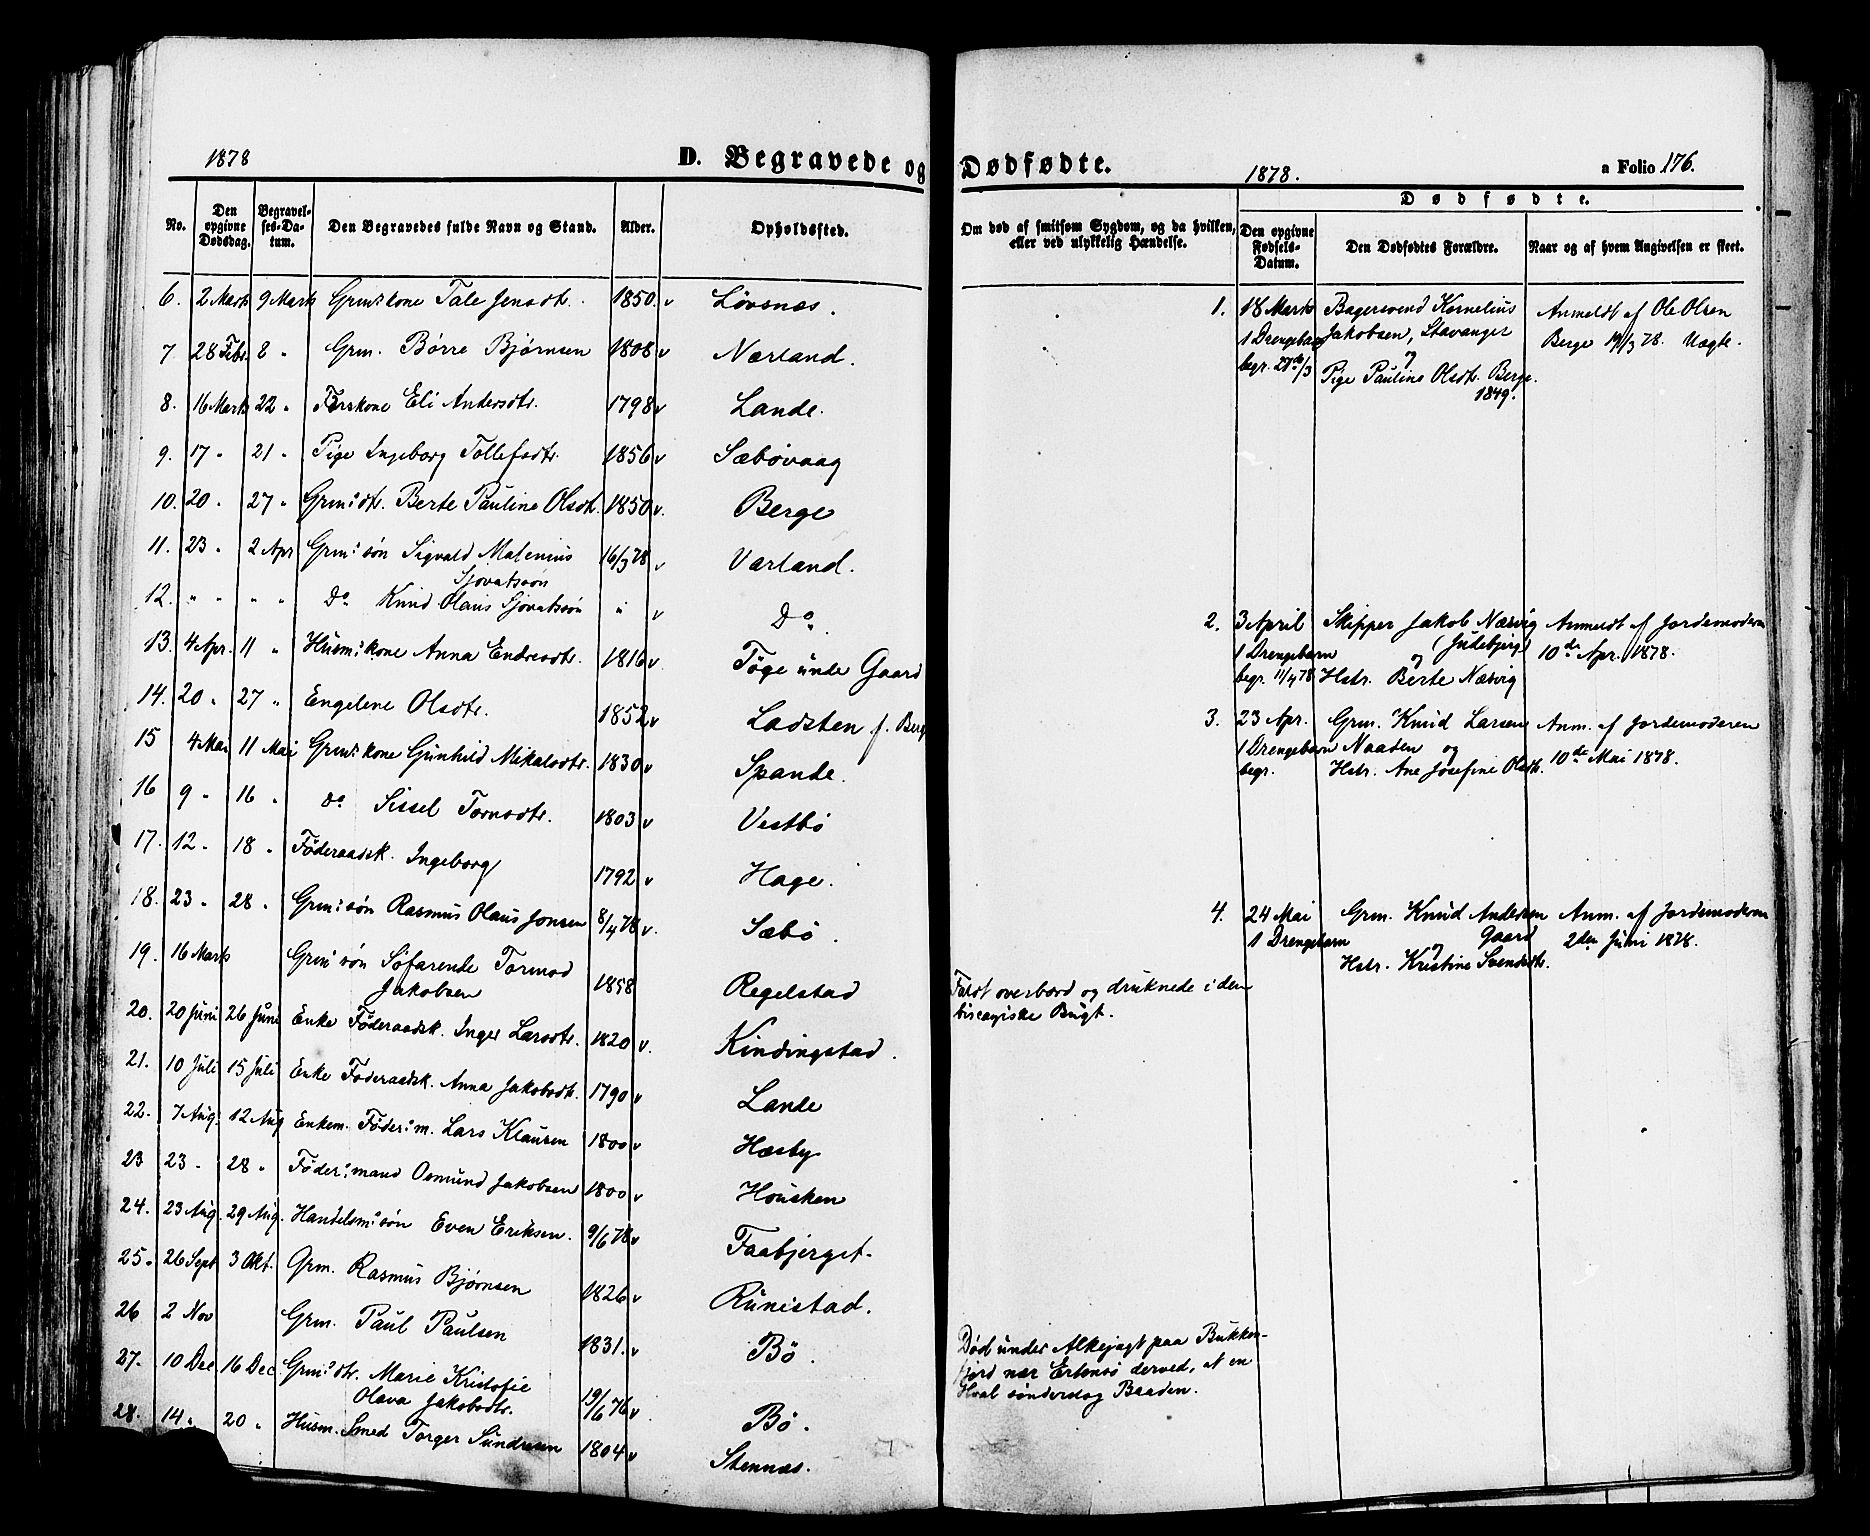 1878
D. Begravede og Dødfødte.
1878.
a Folio 176.
No.
Den opgivne Dødsdag.
Begravelses-Datum.
Den Begravedes fulde Navn og Stand.
Alder.
Opholdssted.
Om død af smitsom Sygdom, og da hvilken, eller ved ulykkelig Hændelse.
Dødfødte.
Den opgivne Fødsels-Datum.
Den Dødfødtes Forældre.
Naar og af hvem Angivelsen er skeet.
6. 2 Marts 9 Marts Grm:s kone Tale Jensdtr. 1850. v Løvsnæs.
7 28 Febr. 8 " Grm. Børre Bjørnsen 1808 v Nærland.
8. 16 Marts 22 " Eli Andersdtr. 1798 v Lande.
9. 17 " 21 " Pige Ingeborg Tollefsdtr. 1856 v Sæbøvaag
10. 20 " 27 " Grm:s dtr. Berte Pauline Olsdtr. 1850 v. Berge
11. 23 " 2 Apr Grm:s søn Sigvald Matenius Sjovatsøn 16/3 78 v Varland.
12. " " " " Do Knud Olaus Sjovatssøn " v Do.
13. 4 Apr. 11 " Husm:s kone Anna Endresdtr. 1816 v. Føge unde Gaard
14. 20 " 27 " Engelene Olsdtr. 1852 v Ladsten f. Berg
15 4 Mai 11 Mai Grm:s kone Gunhild Mikalsdtr. 1830 v Spande.
16 9 " 16 " do Sissel Tornsdtr. 1803 v Vestbø
17. 12 " 18 " Føderaadsk. Ingeborg 1792 v Hage.
18. 23 " 28 " Grm:s søn Rasmus Olaus Jonsen 8/4 78 v. Sæbø.
19. 16 Marts Grm:s søn Søfarende Tormod Jakobsen 1858 Regelstad
Faldt overbord og druknede i den biscayiske Bugt.
20. 20 Juni 26 Juni Enke Føderaadsk. Inger Larsdtr. 1820 v. Kindingstad.
21. 10 Juli 15 Juli Enke Føderaadsk. Anna Jakobsdtr. 1790 v Lande
22. 7 Aug. 12 Aug Enkem. Føder:m. Lars Klausen 1800 v Hæsby
23 23 " 28 " Føder:mand Osmund Jakobsen 1800 v Housken
24. 23 Aug. 29 Aug. Handelsm:s søn Even Eriksen. 9/6 78 v Faabjerget.
25. 26 Sept 3 Okt. Grm. Rasmus Bjørnsen 1826 v Runestad.
26 2 Nov Grm. Paul Paulsen 1831. v Bø.
Død under Alkejagt paa Bukkenfjord nær Ertensø derved, at en Hval sønderslog Baaden.
27. 10 Dec 16 Dec Grm:s dtr. Marie Kristofie Olava Jakobsdtr. 19/6 76 v Bø.
28. 14 " 20 " Husm. Smed Torger Sundresen 1804 v Stennæs.
1. 18 Marts 1 Drengebarn begr. 27de/3
Bagersvend Kornelius Jakobsen, Stavanger og Pige Pauline Olsdtr. Berge. 1849.
Anmeldt af Ole Olsen Berge 19/3 78. Uægte.
2. 3 April 1 Drengebarn begr. 11/4 78
Skipper Jakob Næsvig (Judebjerg) og Hstr. Berte Næsvig
Anmeldt af Jordemoderen 10de Apr. 1878.
3. 23 Apr. 1 Drengebarn begr.
Grm. Knud Larsen Naaden og Hstr. Ane Josefine Olsdtr.
Anm. af Jordemoderen 10de Mai 1878.
4. 24 Mai 1 Drengebarn
Grm. Knud Andersen Gaard og Hstr. Kristine Svendsdtr.
Anm. af Jordemoderen 2den Juni 1878.